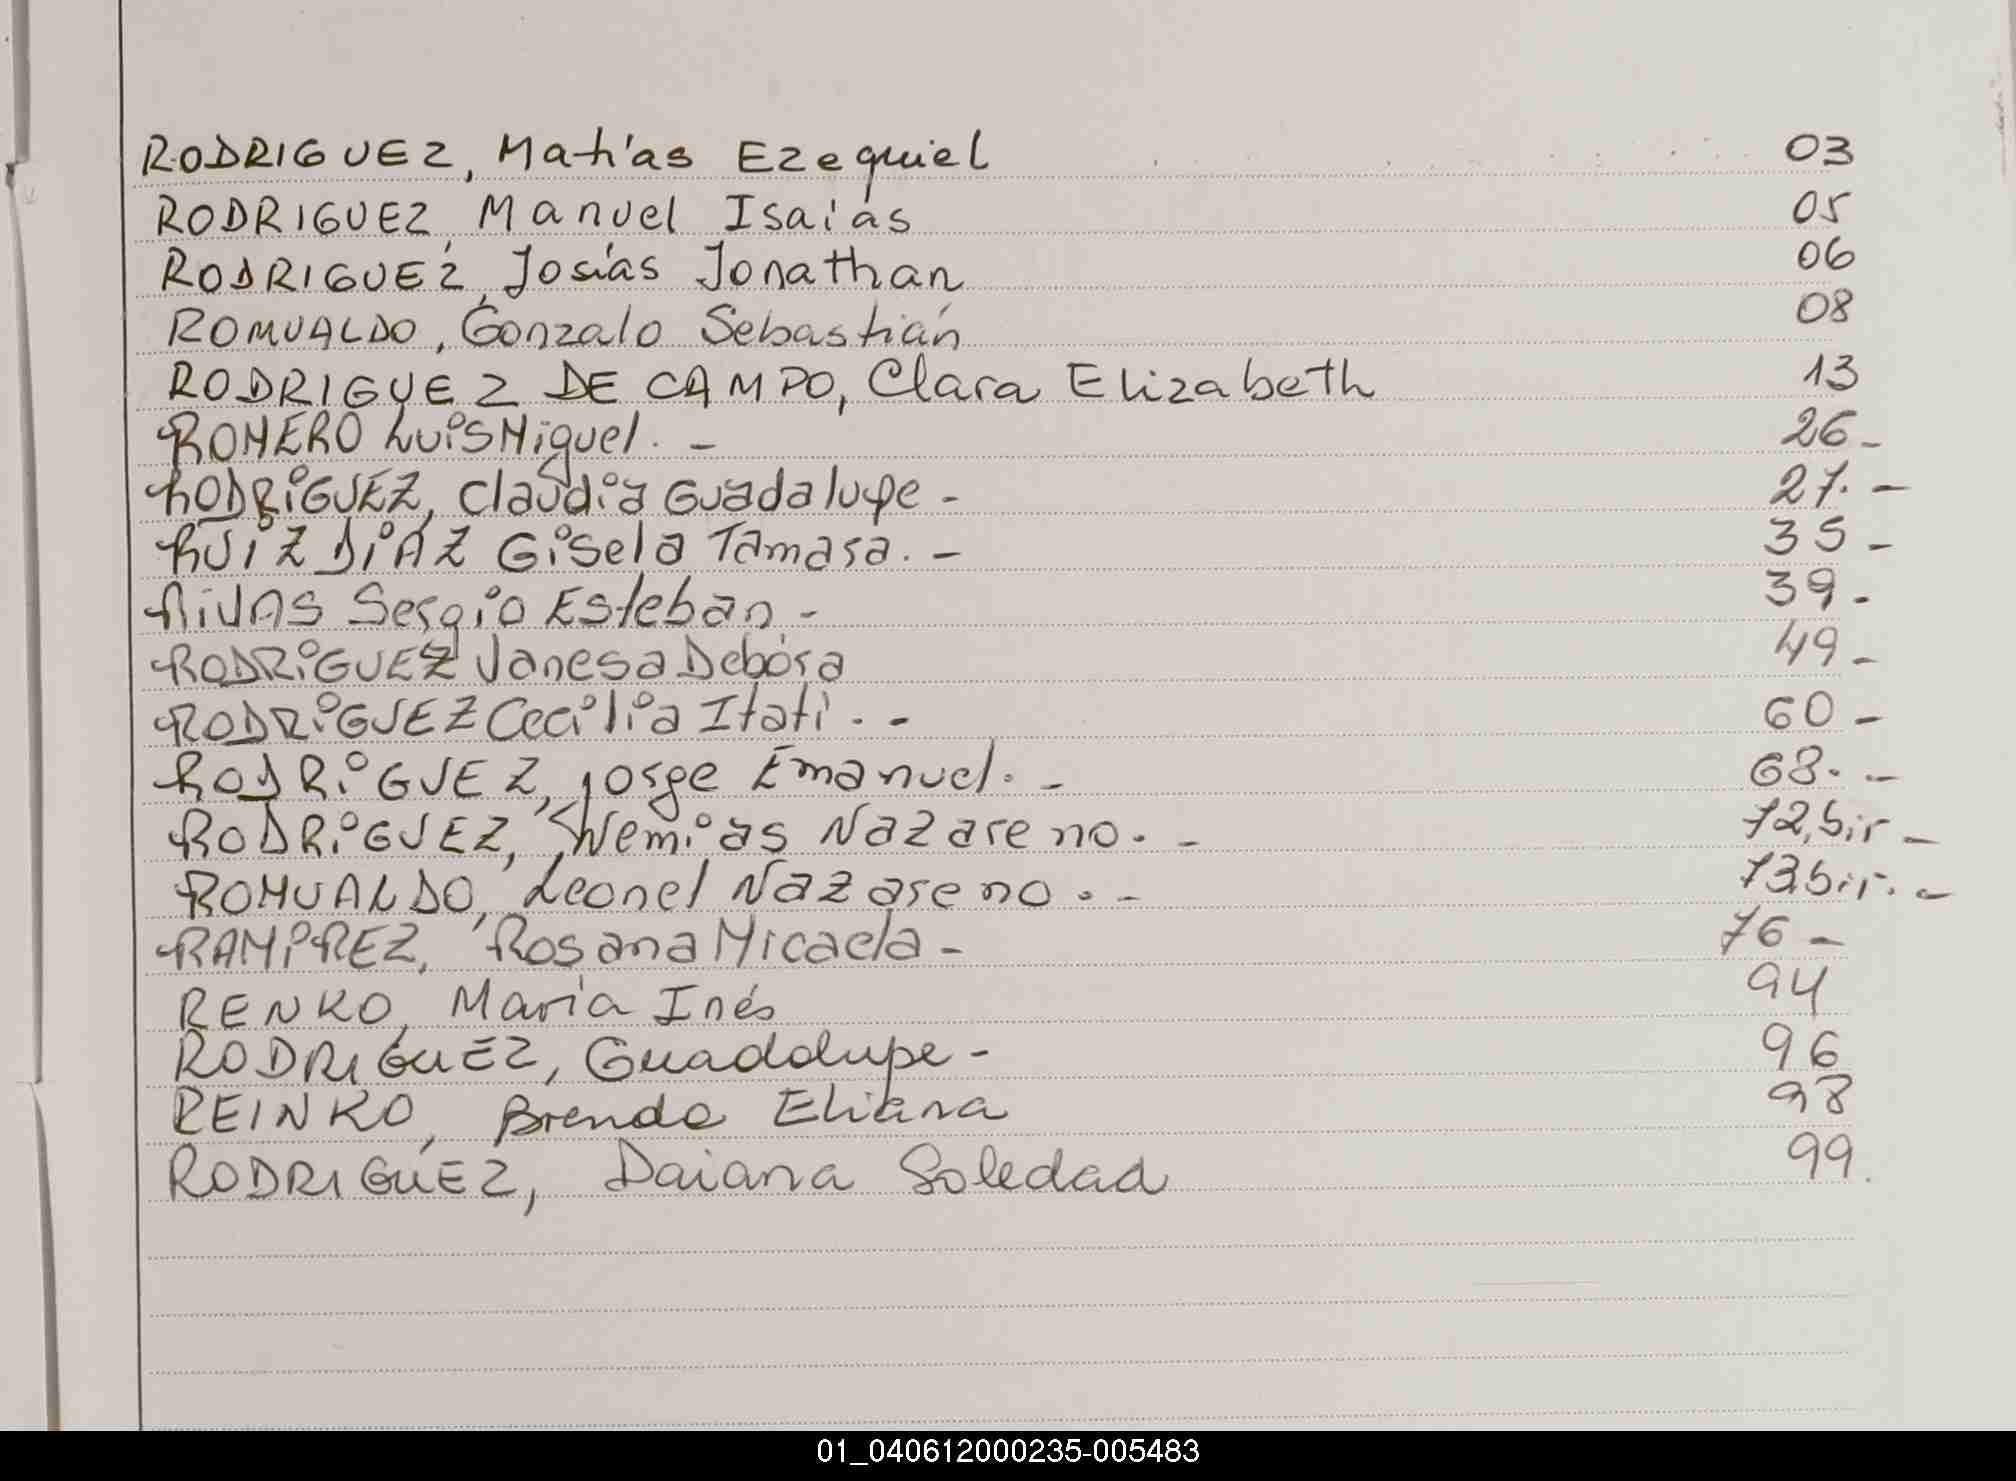 RODRIGUEZ, Matías Ezequiel 03
RODRIGUEZ, Manuel Isaías 05
RODRIGUEZ, Josías Jonathan 06
ROMUALDO, Gonzalo Sebastián 08
RODRIGUEZ DE CAMPO, Clara Elizabeth 13
ROMERO Luis Miguel. - 26 -
RODRIGUEZ, Claudia Guadalupe - 27. -
RUIZ DIAZ Gisela Tamara. - 35 -
RIVAS Sergio Esteban - 39 -
RODRIGUEZ Vanesa Debóra 49 -
RODRIGUEZ Cecilia Itatí. - 60 -
RODRIGUEZ, Jorge Emanuel. - 68. -
RODRIGUEZ, Nemias Nazareno. - 72, bis -
ROMUALDO, Leonel Nazareno. - 73, bis. -
RAMIREZ, Rosana Micaela - 76 -
RENKO, María Inés 94
RODRIGUEZ, Guadalupe - 96
REINKO, Brenda Eliana 98
RODRIGUEZ, Daiana Soledad 99.
01_040612000235-005483